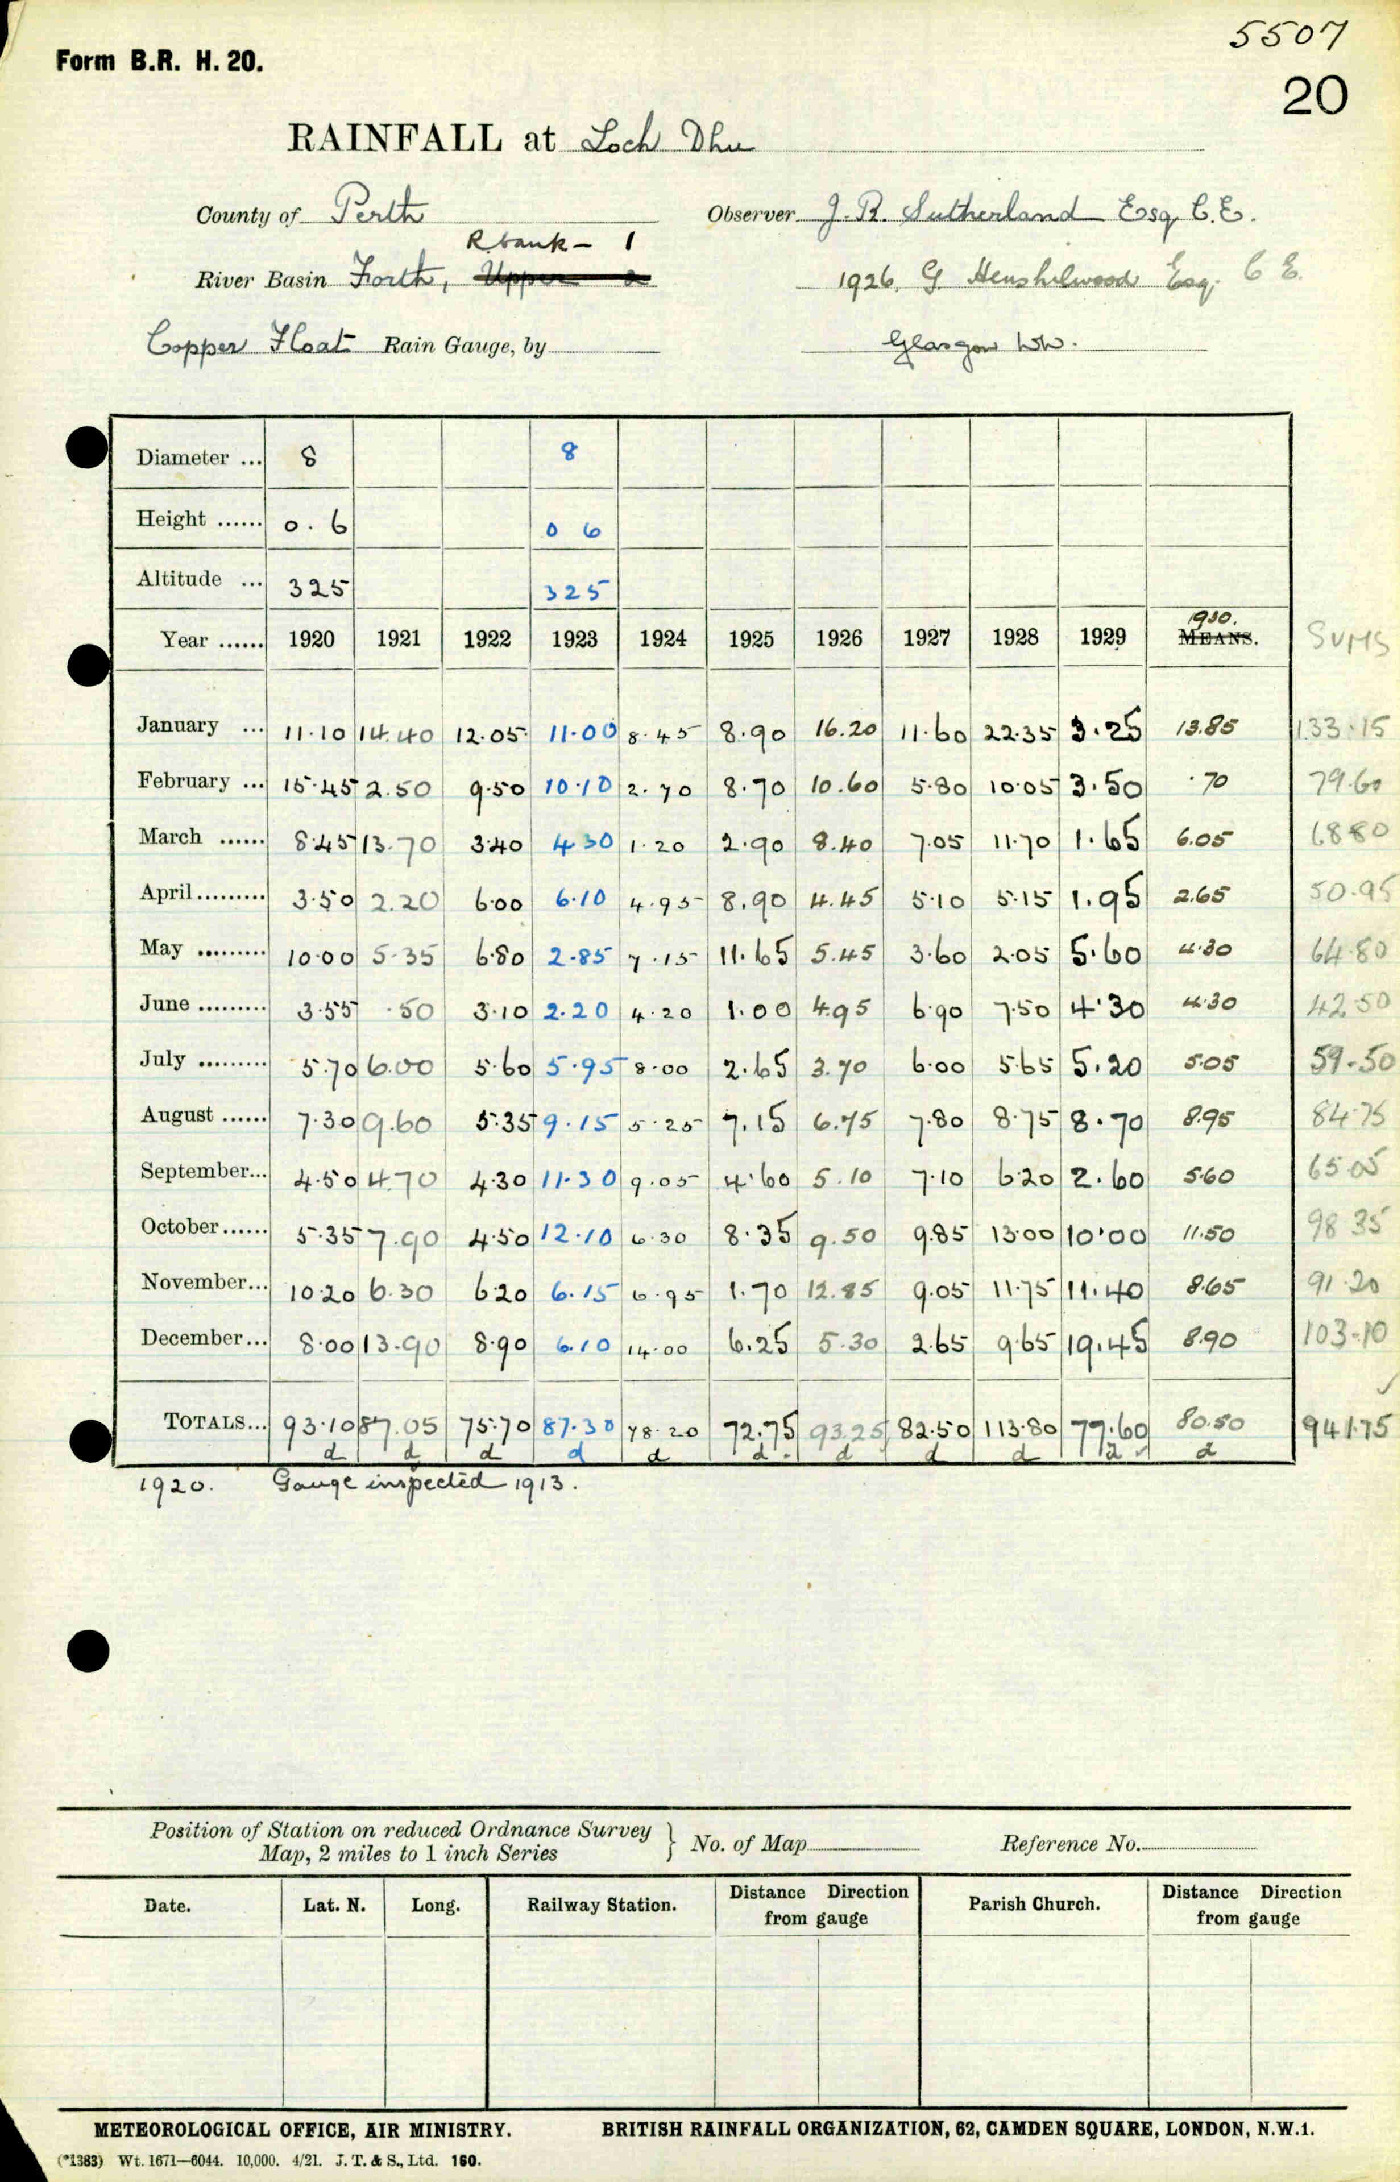 5507
Form B.R. H. 20.
20
RAINFALL at Loch Dhu
County of Perth Observer J. R. Sutherland Esq C.E.
R bank - 1
River Basin Forth, Upper 2 1926. G. Henshilwood Esq. C E.
Copper Float Rain Gauge, by Glasgow WW.
Diameter ... 8 8
Height ...... 0.6 0 6
Altitude ... 325 325
1930.
Year ...... 1920 1921 1922 1923 1924 1925 1926 1927 1928 1929 MEANS. SUMS
January ... 11.10 14.40 12.05 11.00 8.45 8.90 16.20 11.60 22.35 3.25 13.85 133.15
February ... 15.45 2.50 9.50 10.10 2.70 8.70 10.60 5.80 10.05 3.50 .70 79.60
March ...... 8.45 13.70 3.40 4.30 1.20 2.90 8.40 7.05 11.70 1.65 6.05 68.80
April ......... 3.50 2.20 6.00 6.10 4.95 8.90 4.45 5.10 5.15 1.95 2.65 50.95
May ......... 10.00 5.35 6.80 2.85 7.15 11.65 5.45 3.60 2.05 5.60 4.30 64.80
June ......... 3.55 .50 3.10 2.20 4.20 1.00 4.95 6.90 7.50 4.30 4.30 42.50
July ......... 5.70 6.00 5.60 5.95 8.00 2.65 3.70 6.00 5.65 5.20 5.05 59.50
August ...... 7.30 9.60 5.35 9.15 5.25 7.15 6.75 7.80 8.75 8.70 8.95 84.75
September... 4.50 4.70 4.30 11.30 9.05 4.60 5.10 7.10 6.20 2.60 5.60 65.05
October ...... 5.35 7.90 4.50 12.10 6.30 8.35 9.50 9.85 13.00 10.00 11.50 98.35
November... 10.20 6.30 6.20 6.15 6.95 1.70 12.85 9.05 11.75 11.40 8.65 91.20
December... 8.00 13.90 8.90 6.10 14.00 6.25 5.30 2.65 9.65 19.45 8.90 103.10
TOTALS... 93.10 87.05 75.70 87.30 78.20 72.75 93.25 82.50 113.80 77.60 80.50 941.75
d d d d d d d d d d d
1920. Gauge inspected 1913.
Position of Station on reduced Ordnance Survey
Map, 2 miles to 1 inch Series } No. of Map Reference No.
Date. Lat. N. Long. Railway Station. Distance Direction from gauge Parish Church. Distance Direction from gauge
METEOROLOGICAL OFFICE, AIR MINISTRY. BRITISH RAINFALL ORGANIZATION, 62, CAMDEN SQUARE, LONDON, N.W.1.
(*1383) Wt. 1671—6044. 10,000. 4/21. J. T. & S., Ltd. 160.